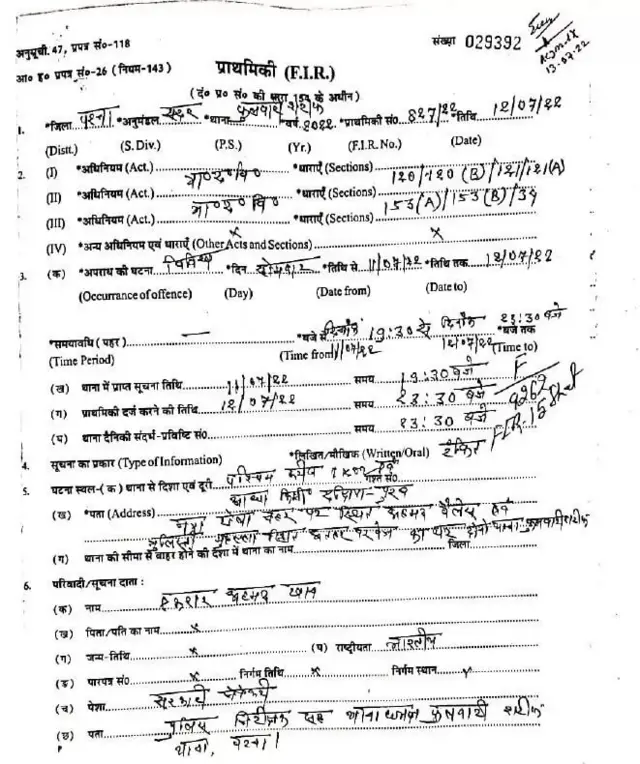 अनुसूची. 47, प्रपत्र सं०-118
संख्या 029392
13-07-22
आ० ह० प्रपत्र सं०-26 (नियम-143)
प्राथमिकी (F.I.R.)
(दं० प्र० सं० की धारा 154 के अधीन)
1. *जिला पटना *अनुमंडल सदर *थाना फुलवारी शरीफ *वर्ष 2022 *प्राथमिकी सं० 827/22 *तिथि 12/07/22
(Distt.) (S. Div.) (P.S.) (Yr.) (F.I.R. No.) (Date)
2. (I) *अधिनियम (Act.) भा० द० वि० *धाराएँ (Sections) 120/120(B)/121/121(A)
(II) *अधिनियम (Act.) भा० द० वि० *धाराएँ (Sections) 153(A)/153(B)/34
(III) *अधिनियम (Act.) x *धाराएँ (Sections) x
(IV) *अन्य अधिनियम एवं धाराएँ (Other Acts and Sections)
3. (क) *अपराध की घटना *दिन सोमवार *तिथि से 11/07/22 *तिथि तक 12/07/22
(Occurrance of offence) (Day) (Date from) (Date to)
*समयावधि (पहर) — *बजे से दिनांक 19:30 से दिनांक 23:30 बजे *बजे तक
(Time Period) (Time from) 11/07/22 12/07/22 (Time to)
(ख) थाना में प्राप्त सूचना तिथि 11/07/22 समय 19:30 बजे
(ग) प्राथमिकी दर्ज करने की तिथि 12/07/22 समय 23:30 बजे
(घ) थाना दैनिकी संदर्भ-प्रविष्टि सं० समय 23:30 बजे
4. सूचना का प्रकार (Type of Information) *लिखित/मौखिक (Written/Oral) टंकित
5. घटना स्थल-(क) थाना से दिशा एवं दूरी पश्चिम करीब
किमी दक्षिण-पूरब
(ख) *पता (Address) नया टोला नहर पर स्थित अहमद पैलेस एवं
का घर दोनों थाना फुलवारीशरीफ
(ग) थाना की सीमा से बाहर होने की दशा में थाना का नाम जिला
6. परिवादी/सूचना दाता :
(क) नाम एकरार अहमद खान
(ख) पिता/पति का नाम x
(ग) जन्म-तिथि x (घ) राष्ट्रीयता भारतीय
(ङ) पारपत्र सं० x निर्गम तिथि x निर्गम स्थान
(च) पेशा सरकारी नौकरी
(छ) पता पुलिस निरीक्षक सह थानाध्यक्ष फुलवारी शरीफ
थाना, पटना।